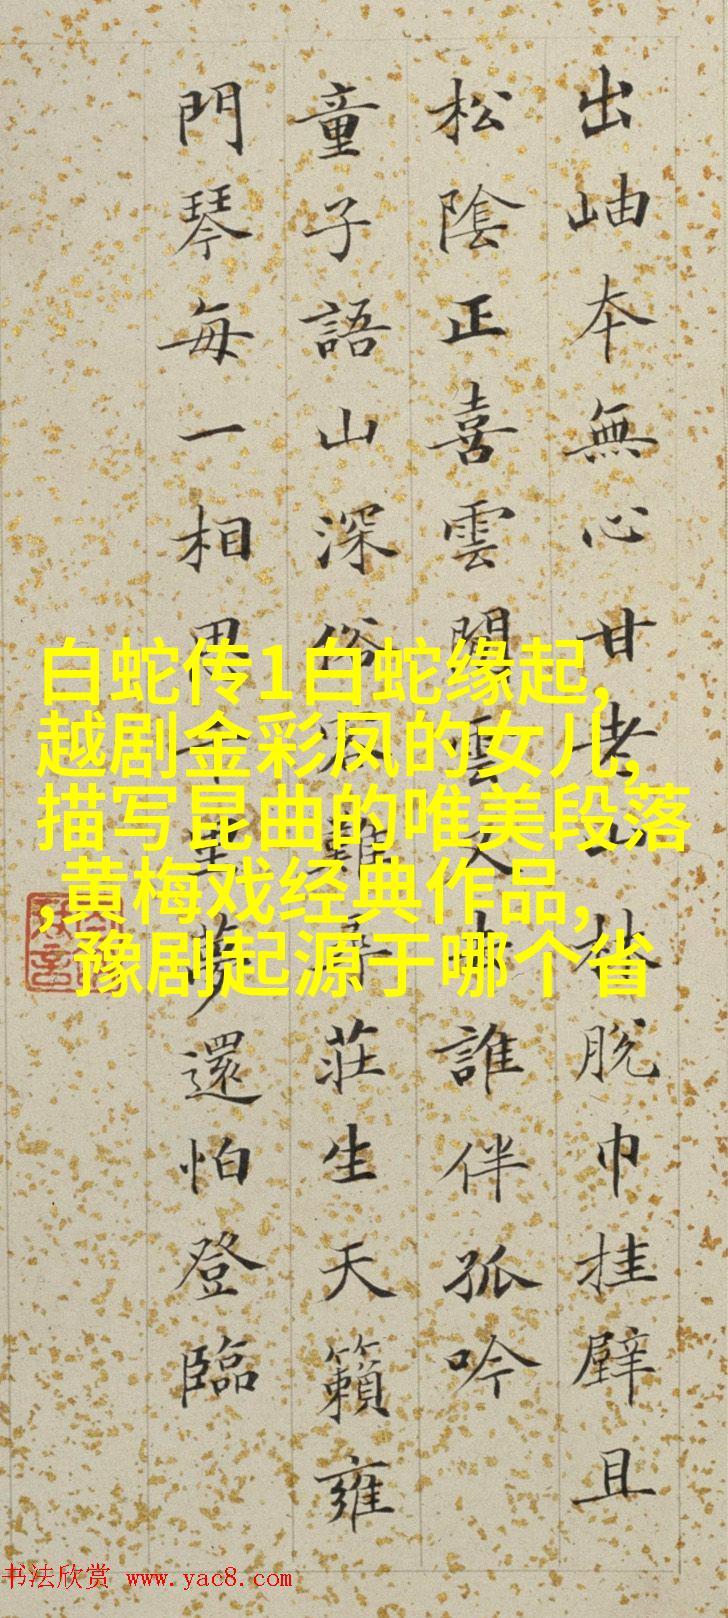 出岫本無心甘老山林脫巾挂壁且
松陰正喜雲雲誰伴孤吟
童子語山深俗難尋莊生天籟雍
門琴每一相思千里夢還怕登臨
白蛇传1白蛇缘起,
越剧金彩凤的女儿,
描写昆曲的唯美段落
,黄梅戏经典作品,
豫剧起源于哪个省
书法欣赏 www.yac8.com